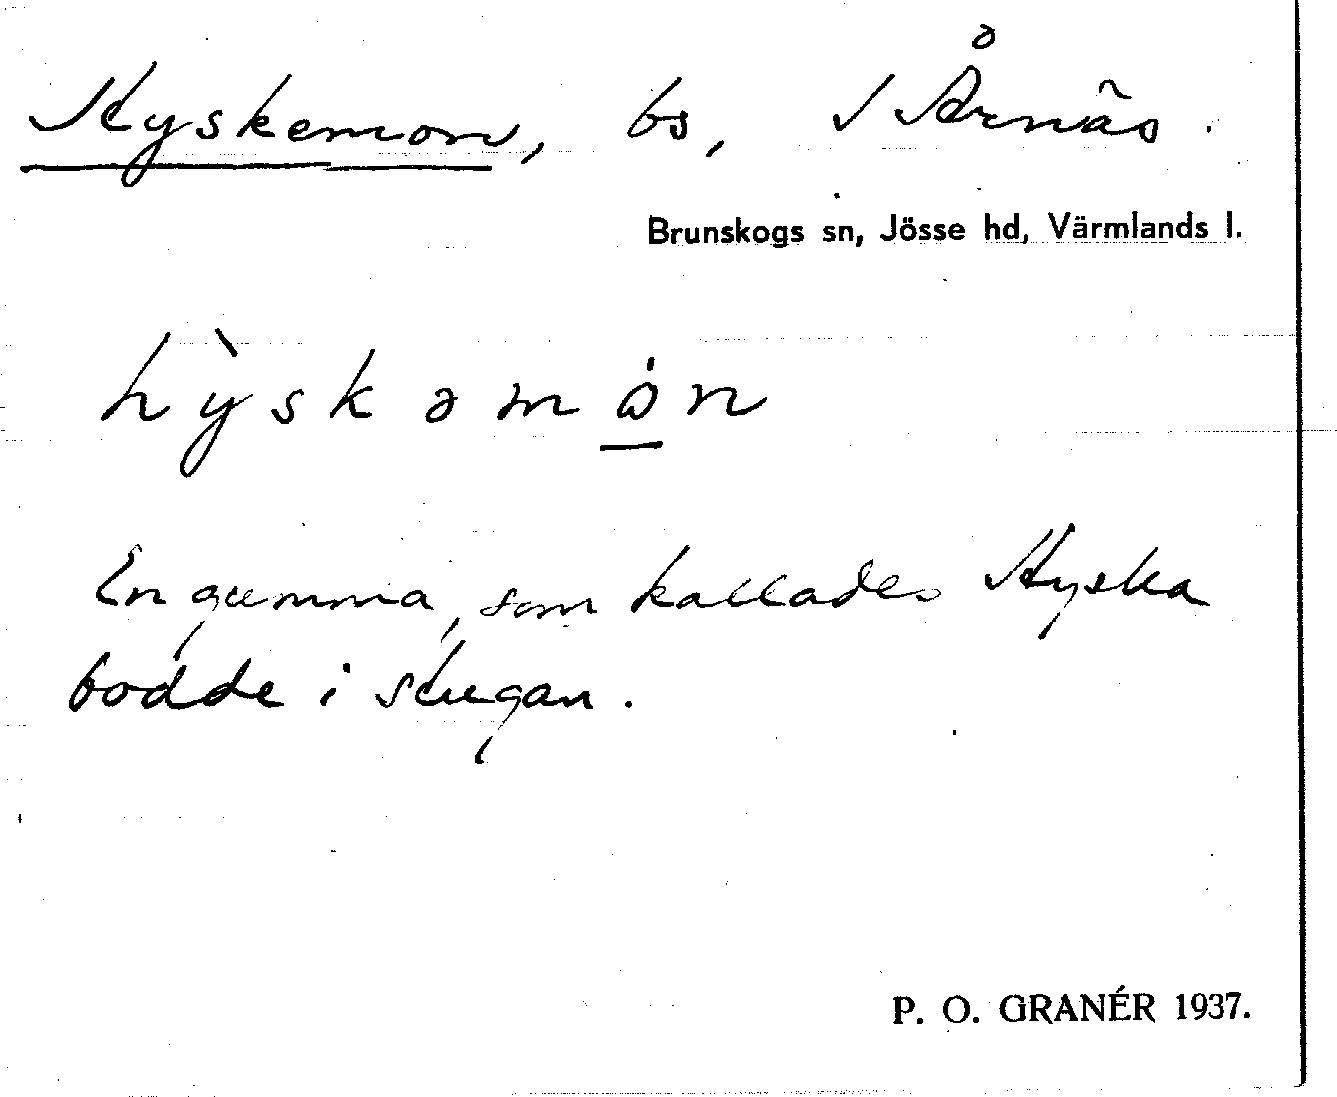 Hyskemon, bs, i Årnäs.
Brunskogs sn, Jösse hd, Värmlands l.
hỳskəmón
En gumma, som kallades Hyska
bodde i stugan.
P. O. GRANÉR 1937.